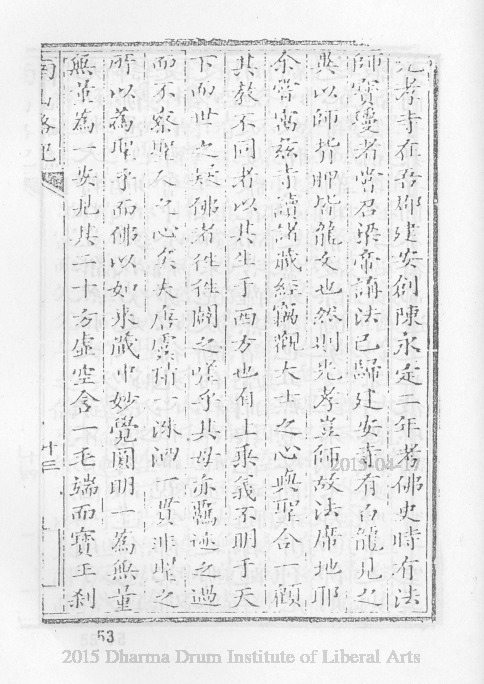 光孝寺在吾鄉建安創陳永定二年考佛史時有法
師寶瓊者嘗君梁帝講法已歸建安寺有白龍見之
異以師背脚皆龍文也然則光孝豈師故法席地耶
余嘗寓茲寺讀諸藏經竊觀大士之心與聖合一顧
其教不同者以其生于西方也自上乘義不明于天
下而世之疑佛者徃徃闢之嗟乎其毋亦泥迹之過
而不察聖人之心矣夫唐虞精一洙泗一貫非聖之
所以為聖乎而佛以如來藏中妙覺圓明一為無量
無量為一安見其二十方虛空含一毛端而寶王剎
南山畧紀
十三
53
2015-04-17
2015 Dharma Drum Institute of Liberal Arts